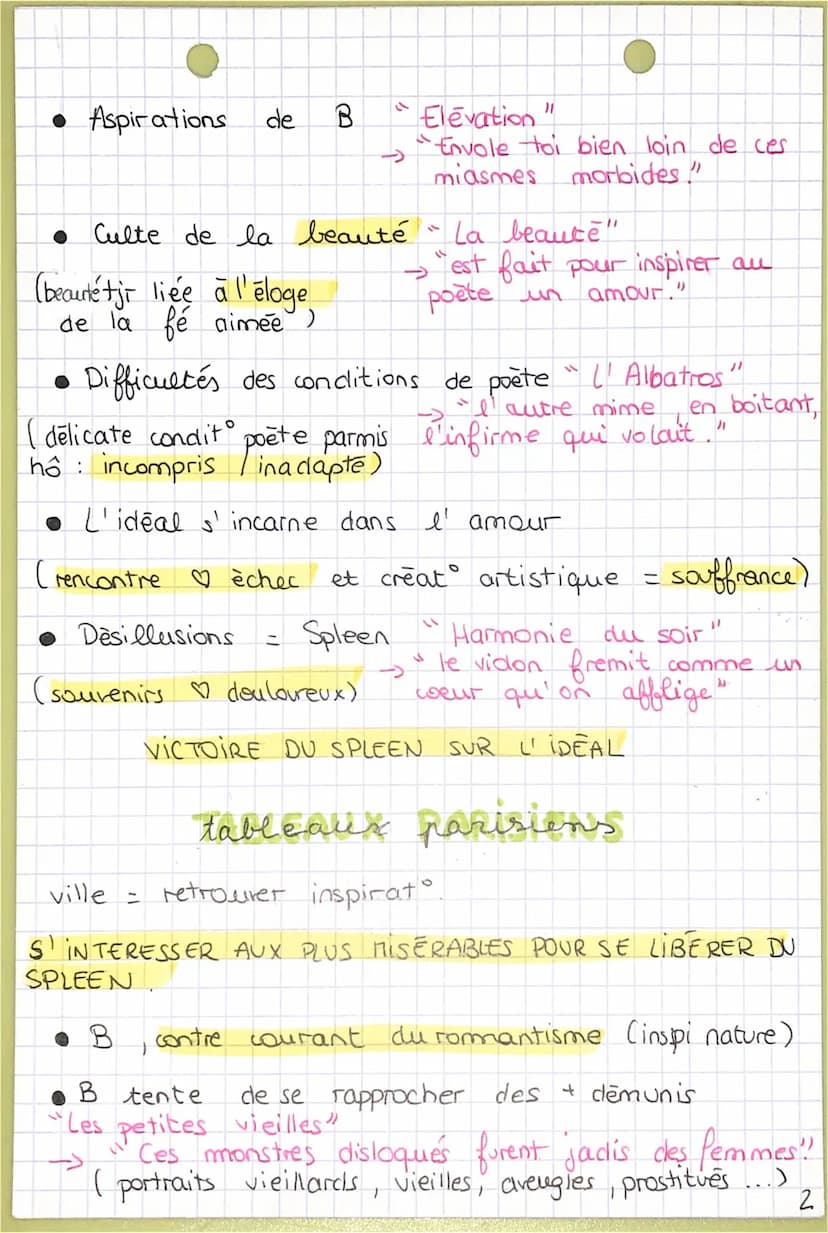 • Aspirations de B " Elévation"
→ "Envole toi bien loin de ces
miasmes morbides."
• Culte de la beauté " La beauté"
→ "est fait pour inspirer au
(beauté tjr liée à l'éloge poète un amour."
de la fé aimée )
• Difficultés des conditions de poète " L'Albatros"
→ "l'autre mime, en boitant,
( délicate condit° poète parmis l'infirme qui volait."
hô : incompris / inadapté)
• L'idéal s'incarne dans l'amour
(rencontre ♡ échec et créat° artistique = souffrance)
• Désillusions = Spleen " Harmonie du soir"
→ " le violon fremit comme un
(souvenirs ♡ douloureux) coeur qu'on afflige"
VICTOIRE DU SPLEEN SUR L'IDÉAL
TABLEAUX PARISIENS
tableaux parisiens
ville = retrouver inspirat°.
S'INTERESSER AUX PLUS MISÉRABLES POUR SE LIBÉRER DU
SPLEEN.
• B , contre courant du rommantisme (inspi nature)
• B tente de se rapprocher des + démunis
"Les petites vieilles"
→ " Ces monstres disloqués furent jadis des femmes"
( portraits vieillards , vieilles, aveugles , prostitués ...)
2